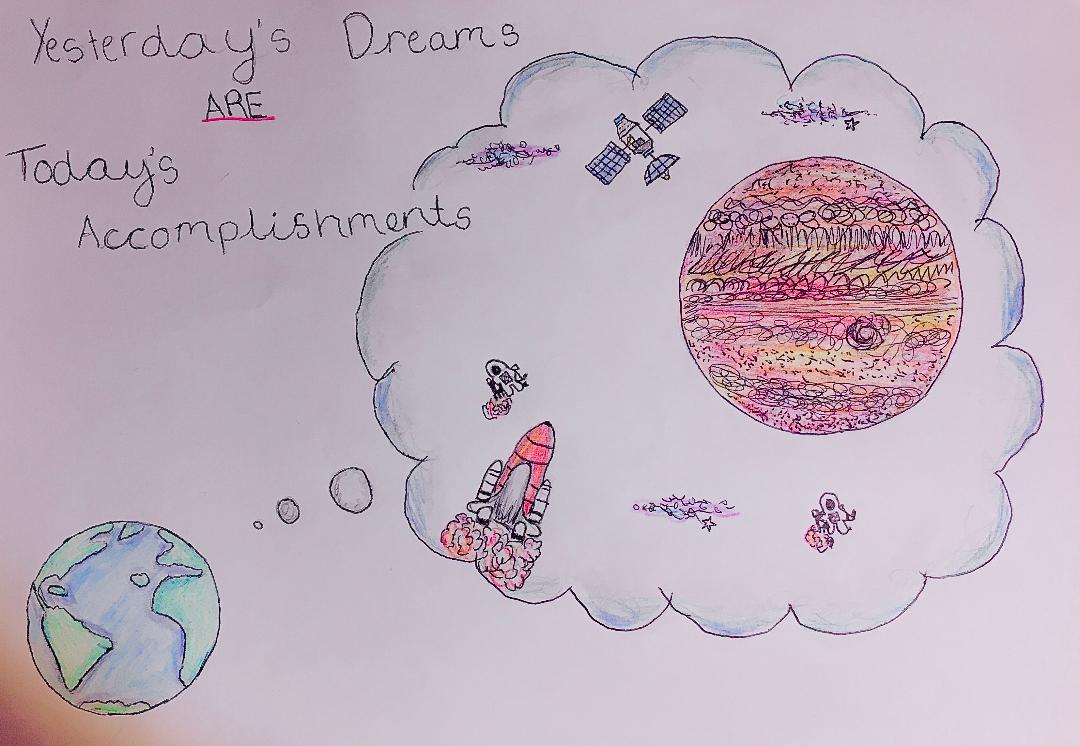 Yesterday's Dreams
ARE
Today's
Accomplishments